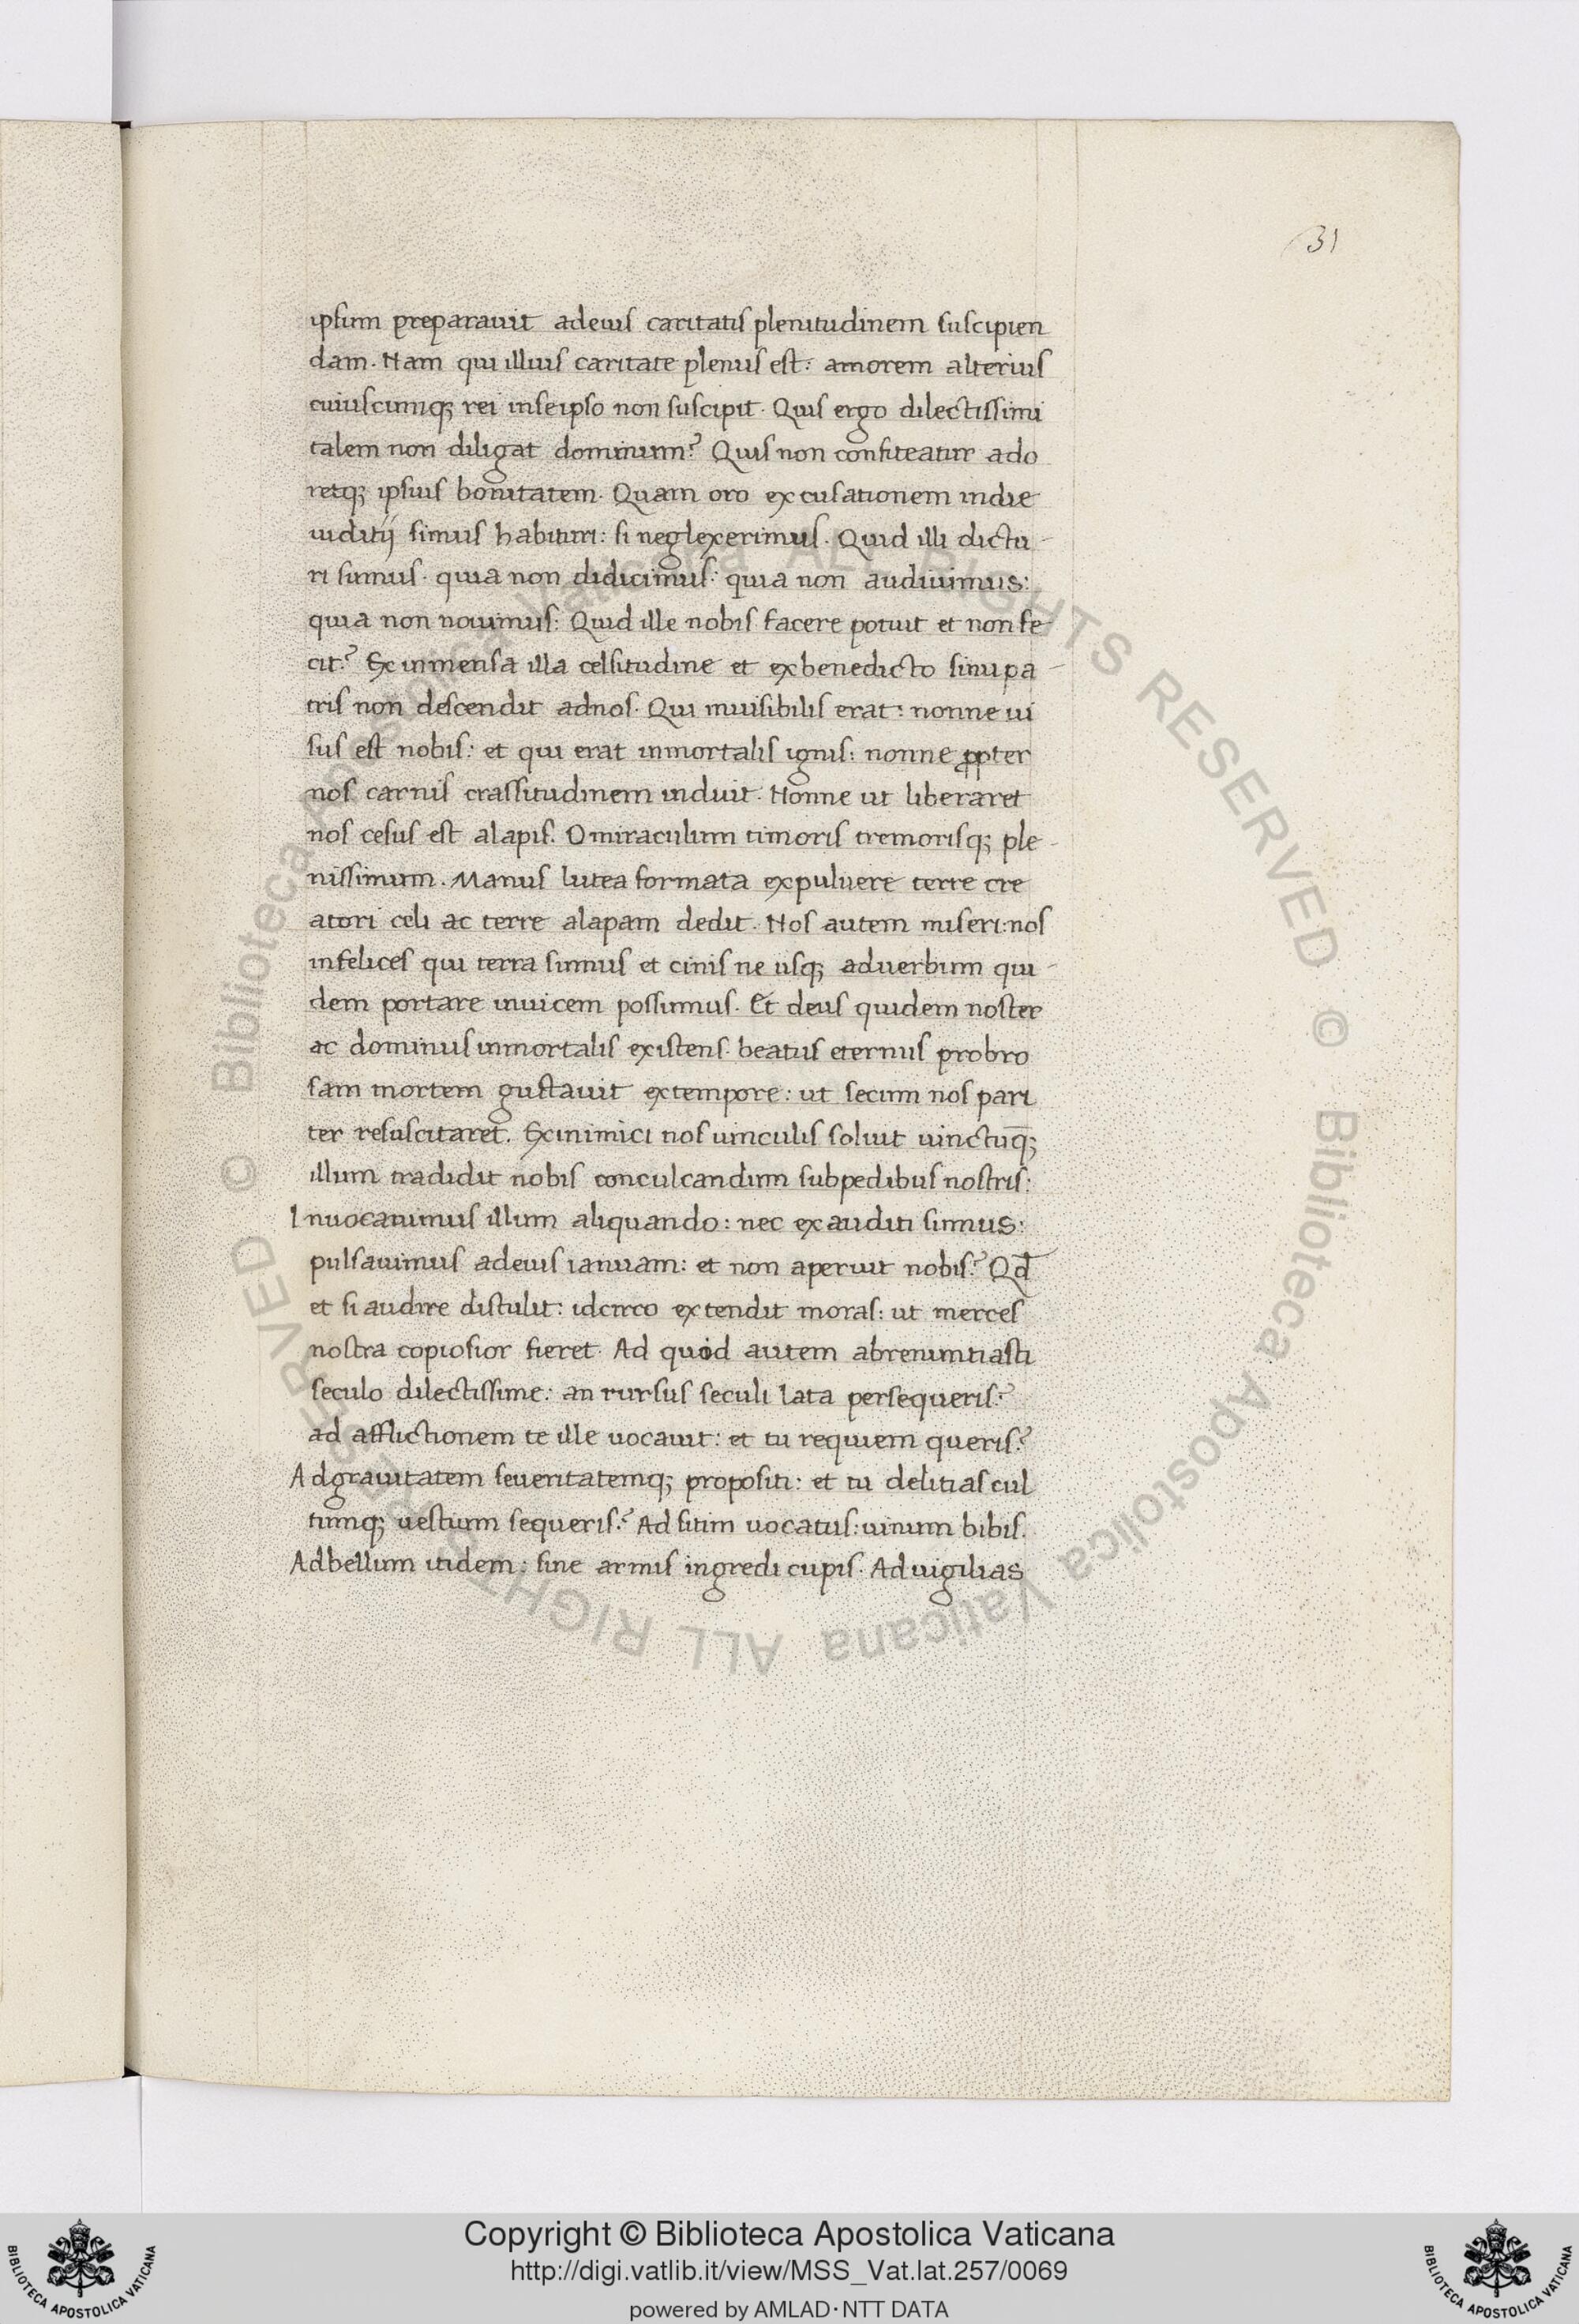 31
ipsum preparauit adeius caritatis plenitudinem suscipien
dam. Nam qui illius caritate plenus est: amorem alterius
cuiuscumq; rei inseipso non suscipit. Quis ergo dilectissimi
talem non diligat dominum? Quis non confiteatur ado
retq; ipsius bonitatem. Quam oro excusationem indie
iuditij simus habituri: si neglexerimus. Quid illi dictu-
ri sumus. quia non didicimus: quia non audiuimus:
quia non nouimus: Quid ille nobis facere potuit et non fe-
cit? Ex inmensa illa celsitudine et exbenedicto sinu pa-
tris non descendit adnos. Qui inuisibilis erat: nonne ui
sus est nobis: et qui erat inmortalis ignis: nonne ꝓpter
nos carnis crassitudinem induit. Nonne ut liberaret
nos cesus est alapis. O miraculum timoris tremorisq; ple-
nissimum. Manus lutea formata expuluere terre cre
atori celi ac terre alapam dedit. Nos autem miseri: nos
infelices qui terra sumus et cinis ne usq; aduerbum qui-
dem portare inuicem possumus. Et deus quidem noster
ac dominus inmortalis existens. beatus eternus probro
sam mortem gustauit extempore: ut secum nos pari
ter resuscitaret. Exinimici nos uinculis soluit uinctuq̄;
illum tradidit nobis conculcandum subpedibus nostris:
Inuocauimus illum aliquando: nec exauditi sumus:
pulsauimus adeius ianuam: et non aperuit nobis? Qđ
et si audire distulit: idcirco extendit moras: ut merces
nostra copiosior fieret. Ad quid autem abrenuntiasti
seculo dilectissime: an rursus seculi lata persequeris?
ad afflictionem te ille uocauit: et tu requiem queris?
Adgrauitatem seueritatemq; propositi: et tu delitias cul
tumq; uestium sequeris? Ad sitim uocatus: uinum bibis.
Adbellum itidem: sine armis ingredi cupis. Aduigilias
© Biblioteca Apostolica Vaticana ALL RIGHTS RESERVED © Biblioteca Apostolica Vaticana ALL RIGHTS RESERVED
Copyright © Biblioteca Apostolica Vaticana
http://digi.vatlib.it/view/MSS_Vat.lat.257/0069
powered by AMLAD·NTT DATA
BIBLIOTECA APOSTOLICA VATICANA
BIBLIOTECA APOSTOLICA VATICANA